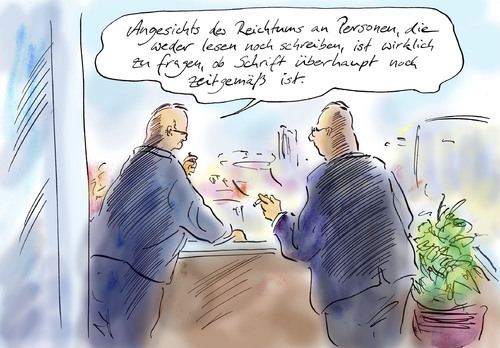 Angesichts des Reichtums an Personen, die
weder lesen noch schreiben, ist wirklich
zu fragen, ob Schrift überhaupt noch
zeitgemäß ist.